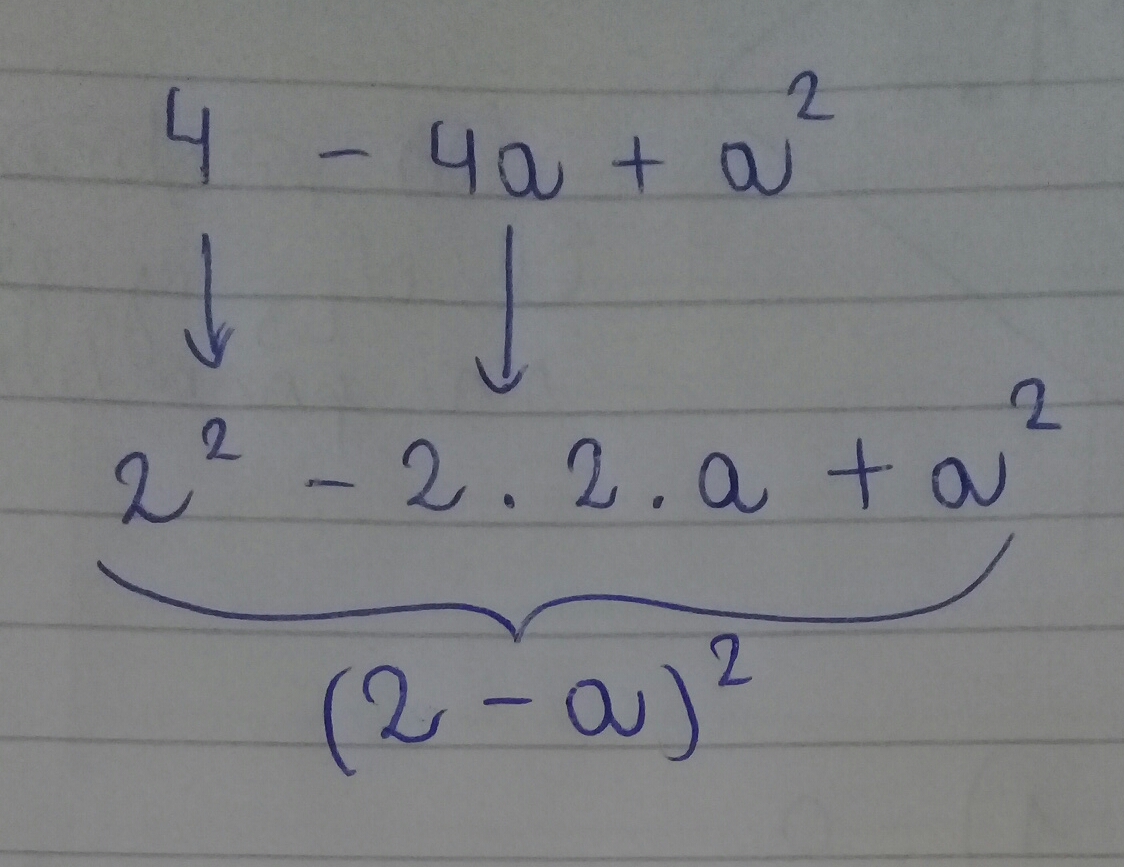 4 - 4a + a²
2² - 2 . 2 . a + a²
(2 - a)²